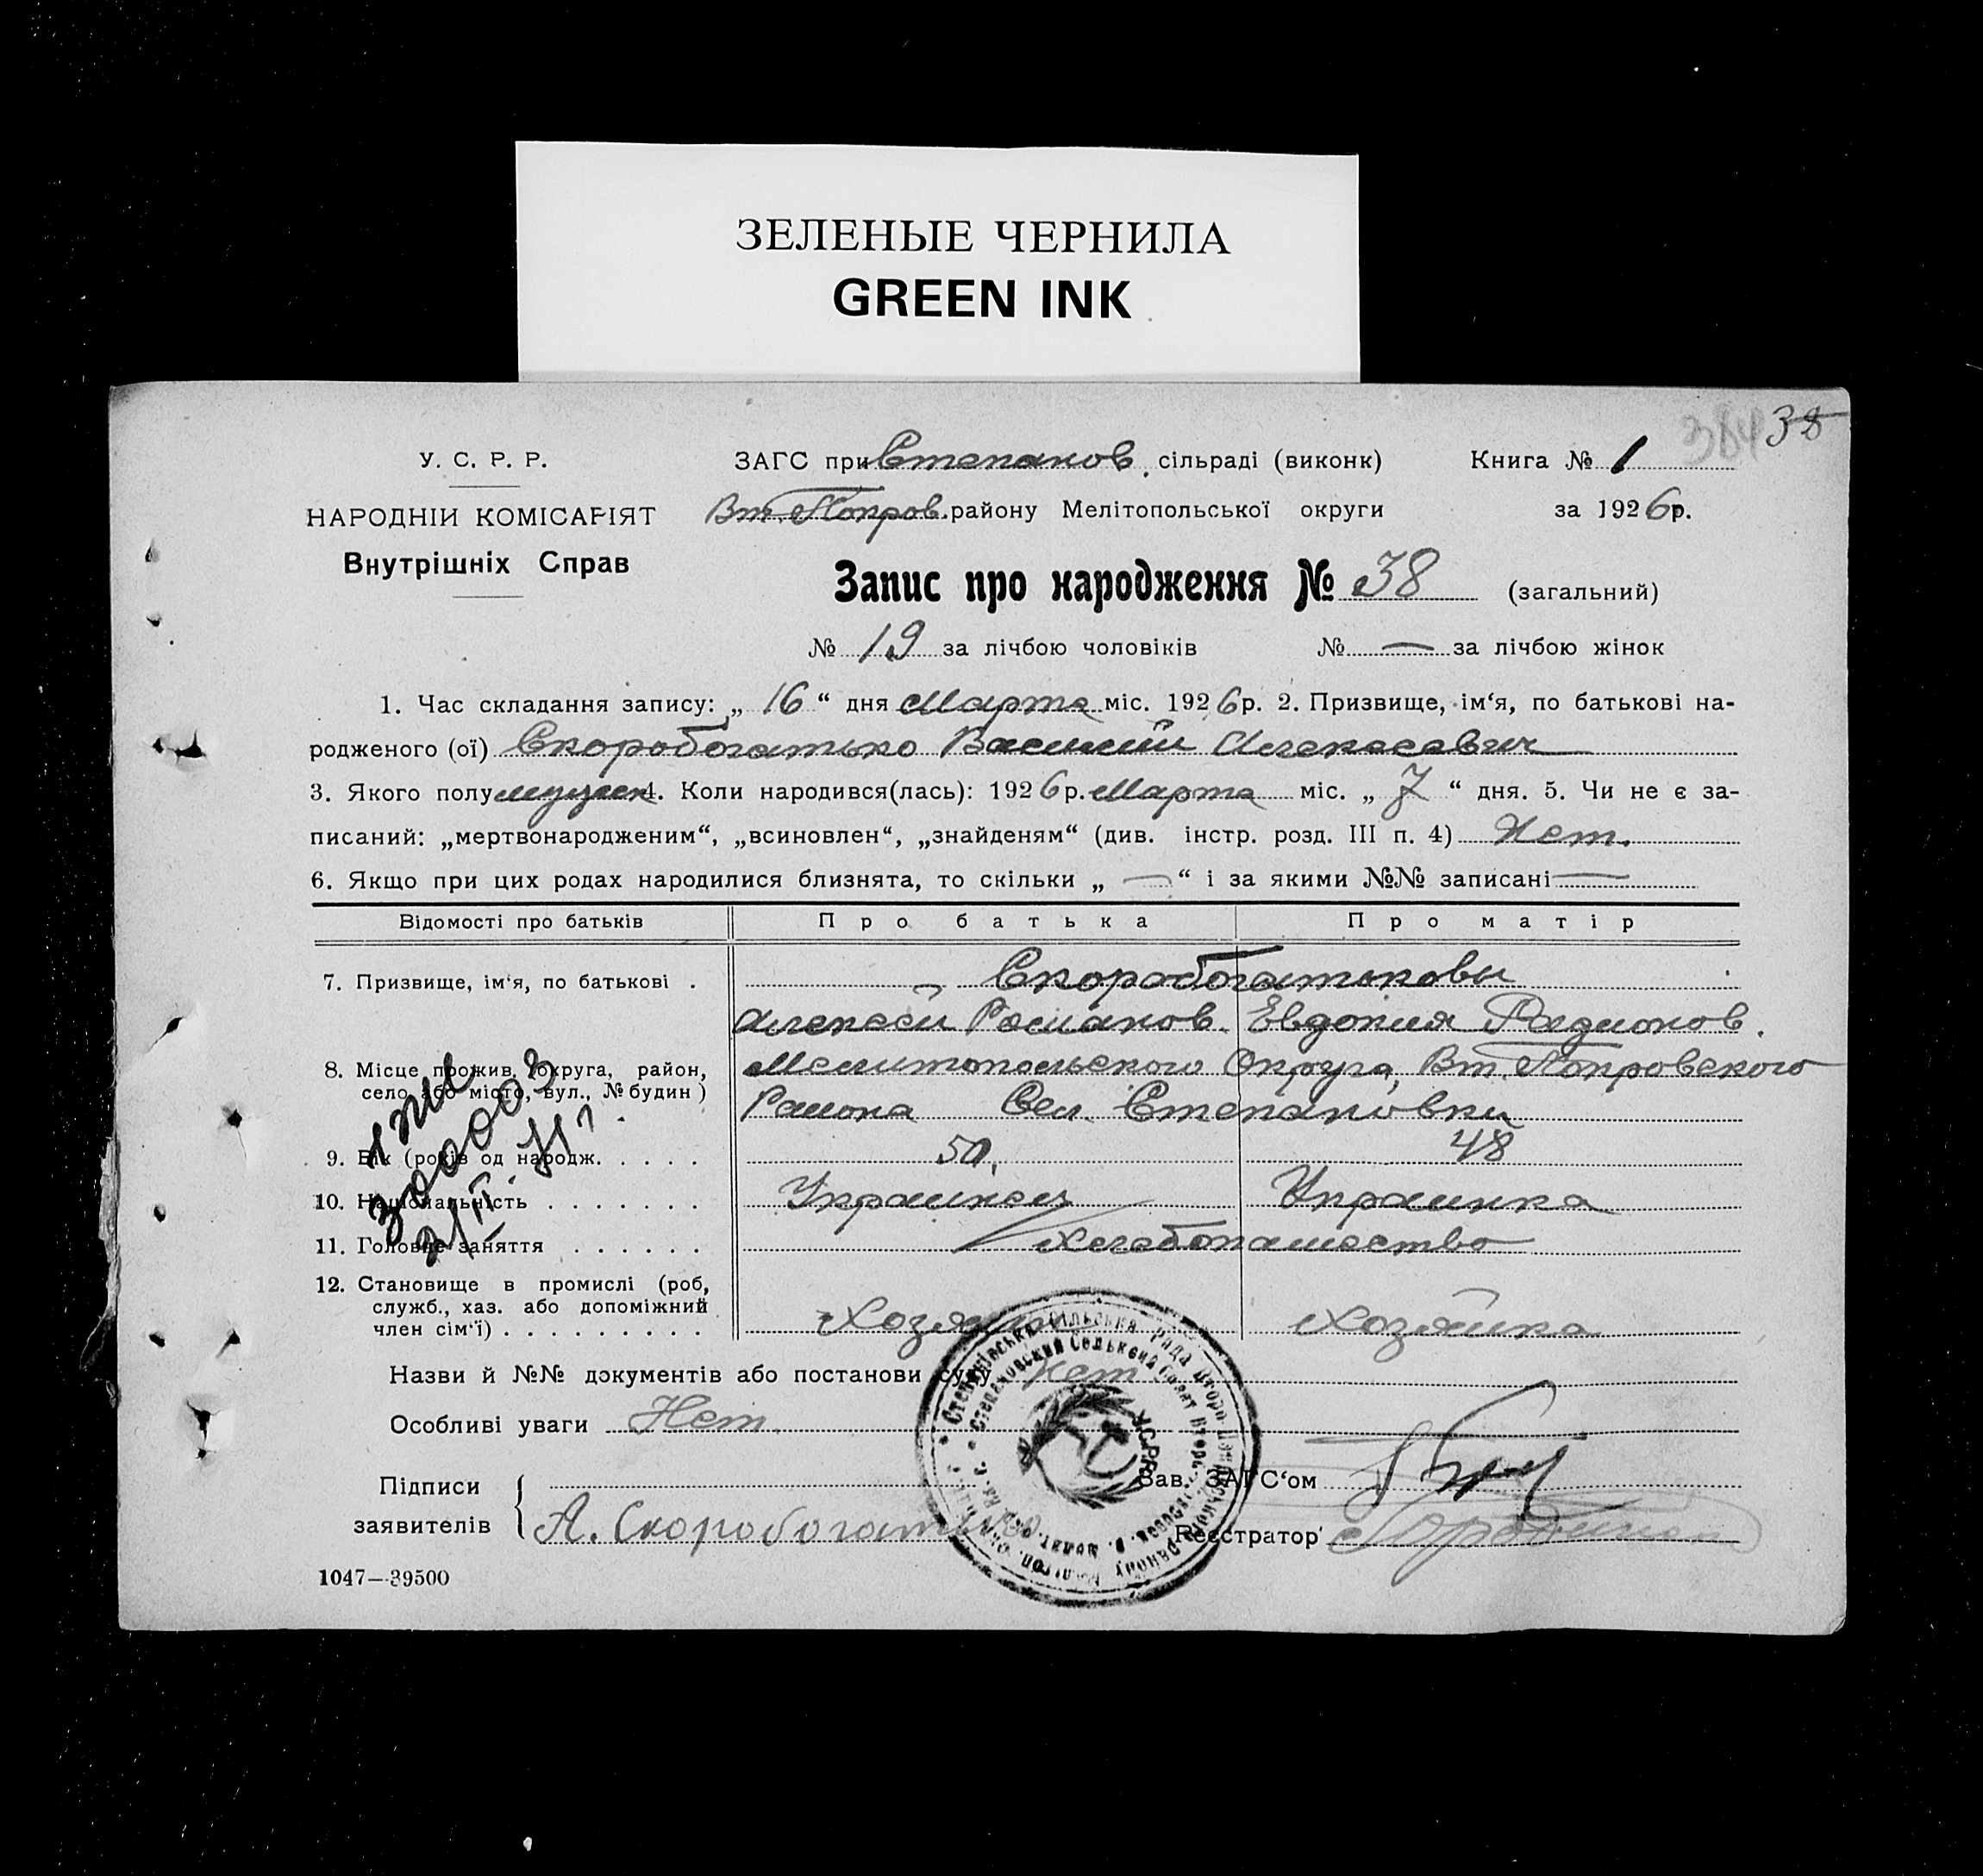 ЗЕЛЕНЫЕ ЧЕРНИЛА
GREEN INK
384 38
У. С. Р. Р.
НАРОДНІЙ КОМІСАРІЯТ
Внутрішніх Справ
ЗАГС при Степанов. сільраді (виконк) Книга № 1
Вт. Покров. району Мелітопольської округи за 1926 р.
Запис про народження № 38 (загальний)
№ 19 за лічбою чоловіків № — за лічбою жінок
1. Час складання запису: „ 16 “ дня Марта міс. 1926 р. 2. Призвище, ім‘я, по батькові на-
родженого (ої) Скоробогатько Василий Алексеевич
3. Якого полу мужск 4. Коли народився(лась): 1926 р. Марта міс. „ 7 “ дня. 5. Чи не є за-
писаний: „мертвонародженим“, „всиновлен“, „знайденям“ (див. інстр. розд. III п. 4) Нет.
6. Якщо при цих родах народилися близнята, то скільки „ — “ і за якими №№ записані —
Відомості про батьків Про батька Про матір
7. Призвище, ім‘я, по батькові . Скоробогатьковы
Алексей Романов. Евдокия Радионов.
8. Місце прожив. (округа, район, село або місто, вул., № будин) Мелитопольского Округа, Вт. Покровского
Района Сел. Степановки
9. Вік (років од народж. . . . . 50. 48
10. Національність . . . . . . . Украинец Украинка
11. Головне заняття . . . . . . Хлебопашество
12. Становище в промислі (роб,
служб., хаз. або допоміжний
член сім‘ї) . . . . . . . . . Хозяин Хозяйка
Назви й №№ документів або постанови суду Нет
Особливі уваги Нет.
Підписи
заявителів А. Скоробогатько
Зав. ЗАГС‘ом
Реєстратор
У.С.Р.Р.
1047—39500